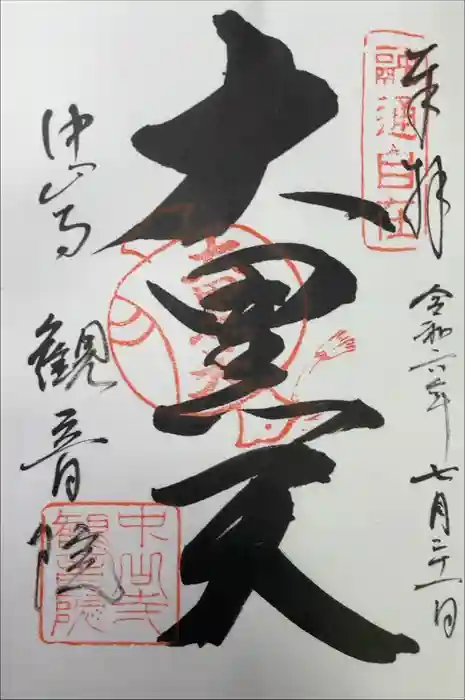 奉拝
融通自在
令和六年七月二十一日
大黒天
中山寺
観音院
中山寺
観音院